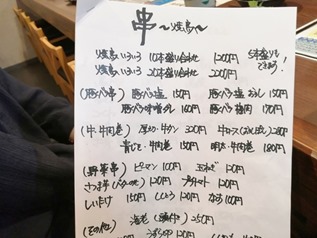 串 〜焼鳥〜
焼鳥いろいろ 10本盛り合わせ 1200円
5本盛りもできます!
焼鳥いろいろ 20本盛り合わせ 2200円
(豚バラ串) 豚バラ塩 150円 豚バラ塩 150円
豚バラ味噌 160円 豚バラ 170円
(牛・牛肉巻) 厚切り牛タン 320円 牛ロース 150円
青じそ・牛肉巻 150円 明太・牛肉巻 180円
(野菜串) ピーマン 100円 玉ねぎ 120円
さつま芋 120円 プチトマト 120円
しいたけ 150円 ししとう 120円 なす 100円
(その他) 海老 250円
120円